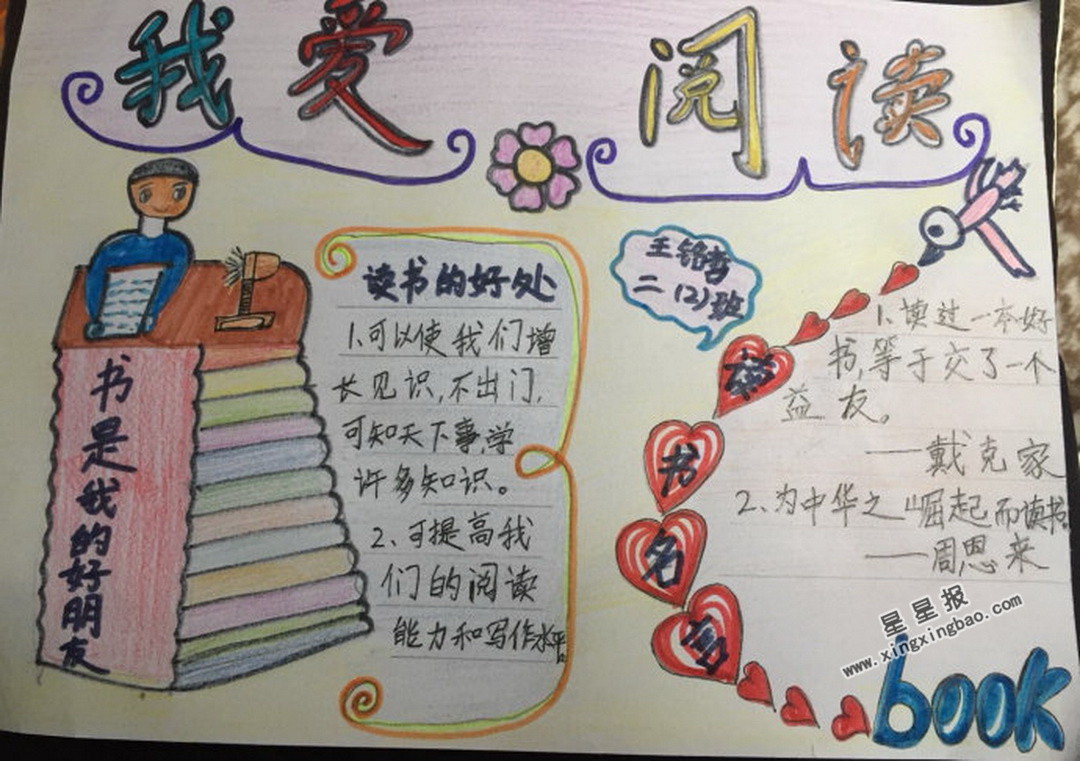 我爱阅读
王铭哲
二(2)班
书是我的好朋友
读书的好处
1.可以使我们增
长见识,不出门,
可知天下事,学
许多知识。
2、可提高我
们的阅读
能力和写作水平。
读书名言
1.读过一本好
书,等于交了一个
益友。
——戴克家
2、为中华之崛起而读书。
——周恩来
星星报
www.xingxingbao.com
book